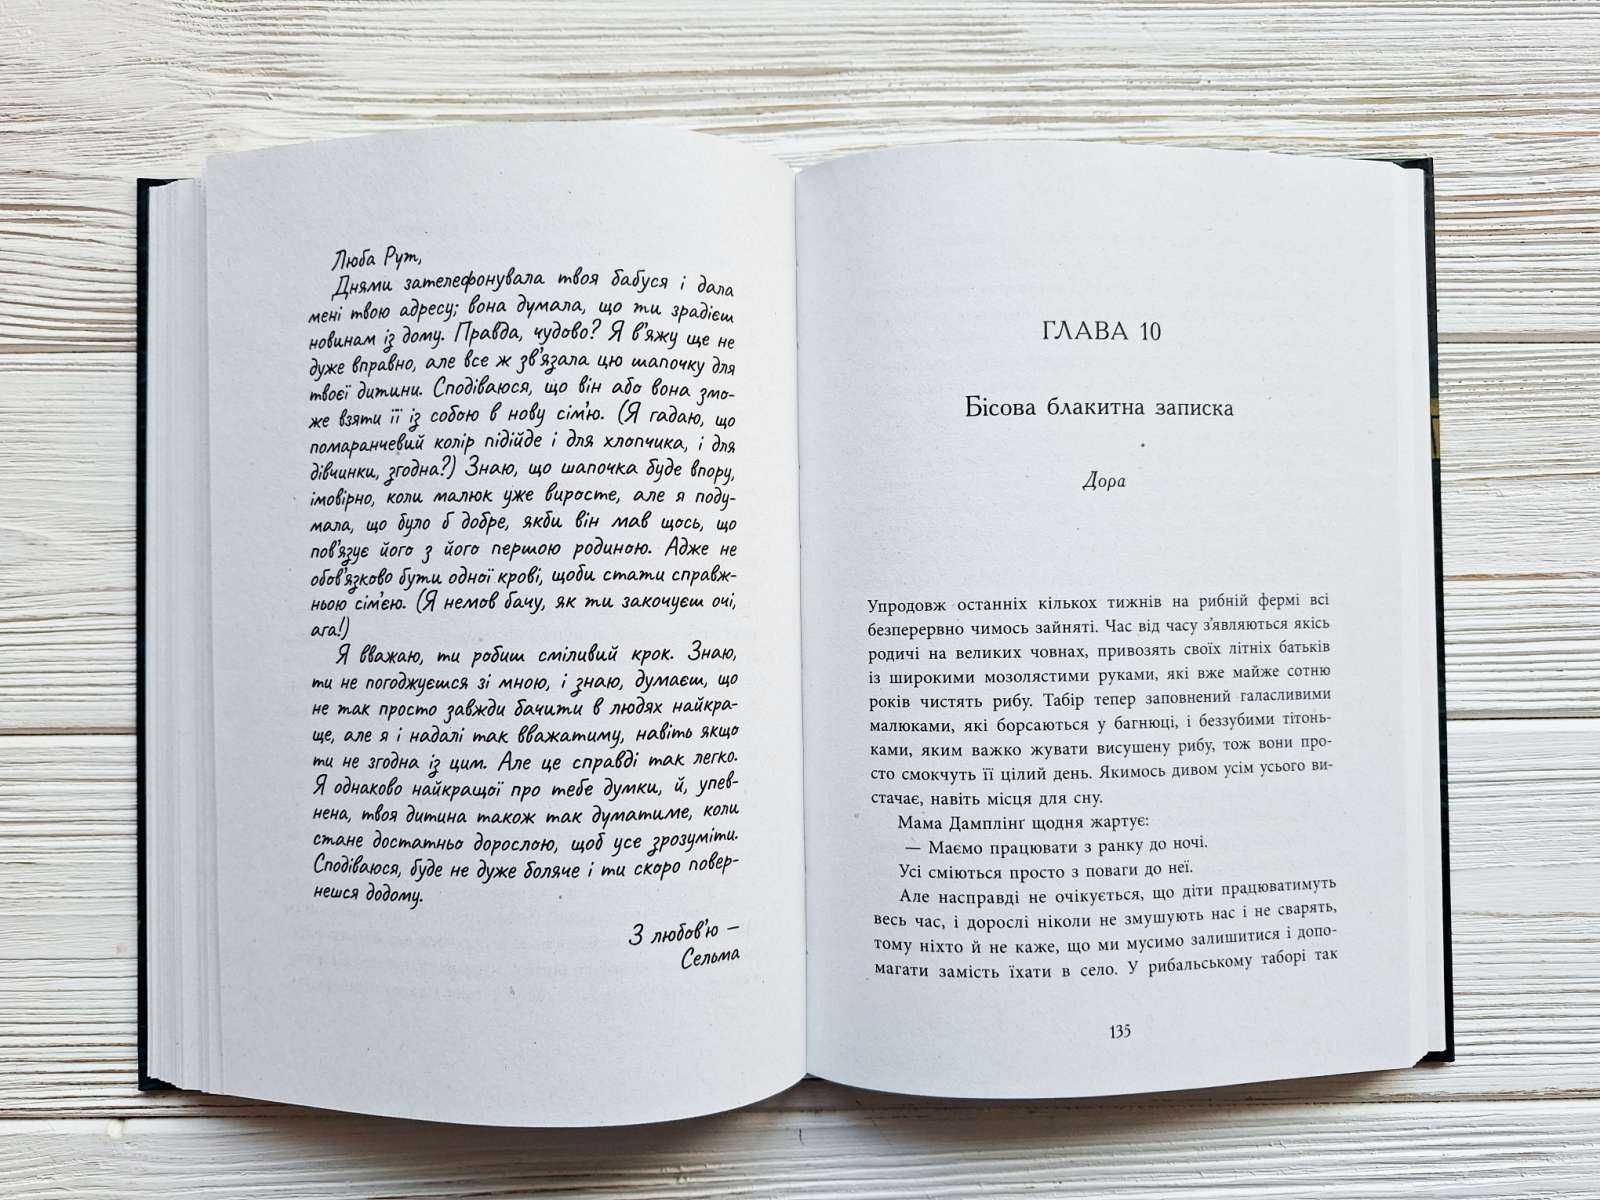 Люба Рут,
Днями зателефонувала твоя бабуся і дала
мені твою адресу; вона думала, що ти зрадієш
новинам із дому. Правда, чудово? Я в'яжу ще не
дуже вправно, але все ж зв'язала цю шапочку для
твоєї дитини. Сподіваюся, що він або вона змо-
же взяти її із собою в нову сім'ю. (Я гадаю, що
помаранчевий колір підійде і для хлопчика, і для
дівчинки, згодна?) Знаю, що шапочка буде впору,
імовірно, коли малюк уже виросте, але я поду-
мала, що було б добре, якби він мав щось, що
пов'язує його з його першою родиною. Адже не
обов'язково бути одної крові, щоби стати справж-
ньою сім'єю. (Я немов бачу, як ти закочуєш очі,
ага!)
Я вважаю, ти робиш сміливий крок. Знаю,
ти не погоджуєшся зі мною, і знаю, думаєш, що
не так просто завжди бачити в людях найкра-
ще, але я і надалі так вважатиму, навіть якщо
ти не згодна із цим. Але це справді так легко.
Я однаково найкращої про тебе думки, й, упев-
нена, твоя дитина також так думатиме, коли
стане достатньо дорослою, щоб усе зрозуміти.
Сподіваюся, буде не дуже боляче і ти скоро повер-
нешся додому.
З любов'ю —
Сельма
ГЛАВА 10
Бісова блакитна записка
Дора
Упродовж останніх кількох тижнів на рибній фермі всі
безперервно чимось зайняті. Час від часу з'являються якісь
родичі на великих човнах, привозять своїх літніх батьків
із широкими мозолястими руками, які вже майже сотню
років чистять рибу. Табір тепер заповнений галасливими
малюками, які борсаються у багнюці, і беззубими тітонь-
ками, яким важко жувати висушену рибу, тож вони про-
сто смокчуть її цілий день. Якимось дивом усім усього ви-
стачає, навіть місця для сну.
Мама Дамплінґ щодня жартує:
— Маємо працювати з ранку до ночі.
Усі сміються просто з поваги до неї.
Але насправді не очікується, що діти працюватимуть
весь час, і дорослі ніколи не змушують нас і не сварять,
тому ніхто й не каже, що ми мусимо залишитися і допо-
магати замість їхати в село. У рибальському таборі так
135